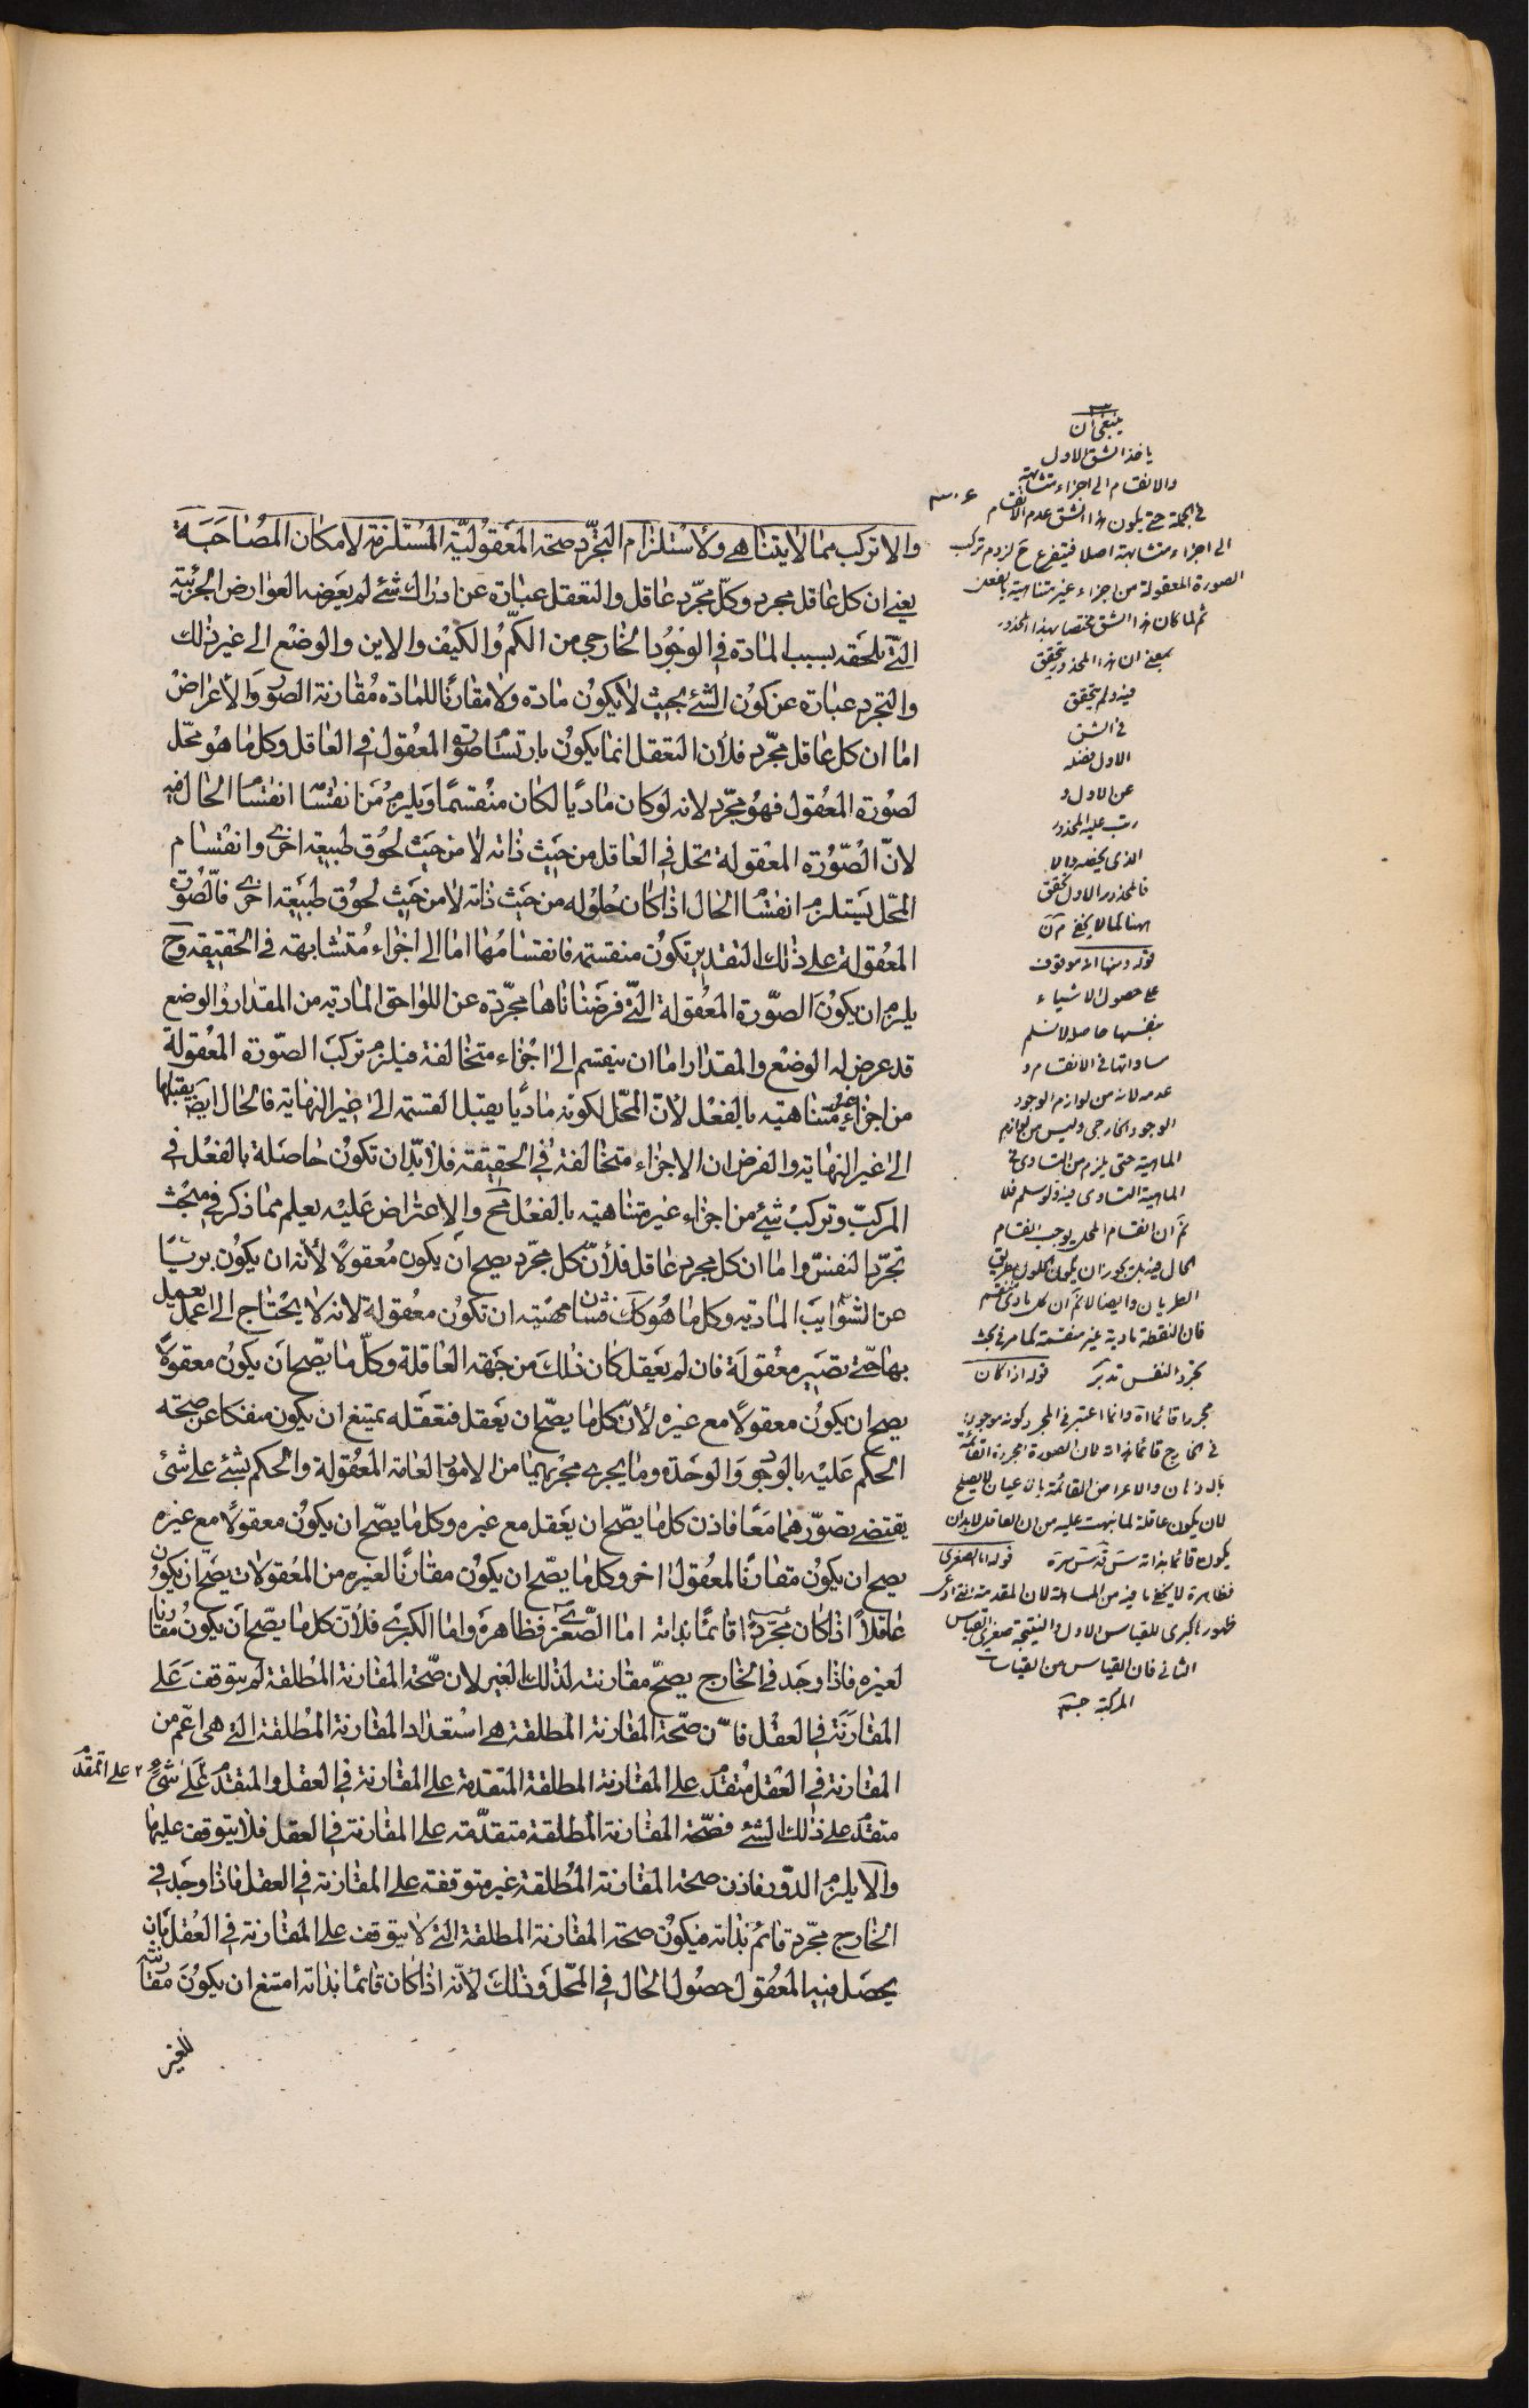 والا تركب مما لا يتناهى ولاستلزام التجرد صحة المعقولية المستلزمة لامكان المصاحبة
يعنى ان كل عاقل مجرد وكل مجرد عاقل والتعقل عبارة عن ادراك شئ لم يعرضه العوارض الجزئية
التى تلحقه بسبب المادة فى الوجود الخارجى من الكم والكيف والاين والوضع الى غير ذلك
والتجرد عبارة عن كون الشئ بحيث لا يكون مادة ولا مقارنا للمادة مقارنة الصور والاعراض
اما ان كل عاقل مجرد فلان التعقل انما يكون بارتسام صورة المعقول فى العاقل وكل ما هو محل
لصورة المعقول فهو مجرد لانه لو كان ماديا لكان منقسما ويلزم من انقسامه انقسام الحال فيه
لان الصورة المعقولة تحل فى العاقل من حيث ذاته لا من حيث لحوق طبيعة اخرى وانقسام
المحل يستلزم انقسام الحال اذا كان حلوله من حيث ذاته لا من حيث لحوق طبيعة اخرى فالصورة
المعقولة على ذلك التقدير تكون منقسمة فانقسامها اما الى اجزاء متشابهة فى الحقيقة وح
يلزم ان يكون الصورة المعقولة التى فرضنا انها مجردة عن اللواحق المادية من المقدار والوضع
قد عرض له الوضع والمقدار اما ان ينقسم الى اجزاء متخالفة فيلزم تركب الصورة المعقولة
من اجزاء غير متناهية بالفعل لان المحل لكونه ماديا يقبل القسمة الى غير النهاية فالحال ايض يقبلها
الى غير النهاية والفرض ان الاجزاء متخالفة فى الحقيقة فلا بد ان تكون حاصلة بالفعل فى
المركب وتركب شئ من اجزاء غير متناهية بالفعل مح والاعتراض عليه يعلم مما ذكر فى مبحث
تجرد النفس واما ان كل مجرد عاقل فلان كل مجرد يصح ان يكون معقولا لانه ان يكون بريئا
عن الشوايب المادية وكل ما هو كك فشان ماهيته ان تكون معقولة لانه لا يحتاج الى عمل يعمل
بها حتى تصير معقولة فان لم يعقل كان ذلك من جهة العاقلة وكل ما يصح ان يكون معقولا
يصح ان يكون معقولا مع غيره لان كل ما يصح ان يعقل فتعقله يمتنع ان يكون منفكا عن صحته
الحكم عليه بالوجود والوحدة وما يجرى مجريهما من الامور العامة المعقولة والحكم بشئ على شئ
يقتضى تصورهما معا فاذن كل ما يصح ان يعقل مع غيره وكل ما يصح ان يكون معقولا مع غيره
يصح ان يكون مقارنا لمعقول اخر وكل ما يصح ان يكون مقارنا لغيره من المعقولات يصح ان يكون
عاقلا اذا كان مجردا قائما بذاته اما الصغرى فظاهرة واما الكبرى فلان كل ما يصح ان يكون مقارنا
لغيره فاذا وجد فى الخارج يصح مقارنته لذلك الغير لان صحة المقارنة المطلقة لم يتوقف على
المقارنة فى العقل فان صحة المقارنة المطلقة هى استعداد المقارنة المطلقة التى هى اعم من
المقارنة فى العقل متقدم على المقارنة المطلقة المتقدمة على المقارنة فى العقل والمتقدم على شئ ٢ على المتقدم
متقدم على ذلك الشئ فصحة المقارنة المطلقة متقدمة على المقارنة فى العقل فلا يتوقف عليها
والا يلزم الدور فاذن صحة المقارنة المطلقة غير متوقفة على المقارنة فى العقل فاذا وجد فى
الخارج مجرد قائم بذاته فيكون صحة المقارنة المطلقة التى لا يتوقف على المقارنة فى العقل بان
يحصل فيه المعقول حصول الحال فى المحل وذلك لانه اذا كان قائما بذاته امتنع ان يكون مقارنته
للغير
ينبغى ان
ياخذ الشق الاول
والانقسام الى اجزاء متشابهة
فى الجملة حتى يكون هذا الشق عدم الانقسام
الى اجزاء متشابهة اصلا فيتفرع ح لزوم تركب
الصورة المعقولة من اجزاء غير متناهية بالفعل
ثم لما كان هذا الشق مختصا بهذا المحذور
بمعنى ان هذا المحذور يتحقق
فيه ولم يتحقق
فى الشق
الاول فصله
عن الاول و
رتب عليه المحذور
الذى يخصه والا
فالمحذور الاول يتحقق
ههنا كما لا يخفى
قوله ومنها انه موقوف
على حصول الاشياء
بنفسها حاصله لا نسلم
مساواتها فى الانقسام و
عدمه لانه من لوازم الوجود
الوجود الخارجى وليس من لوازم
الماهية حتى يلزم من التساوى فى
الماهية التساوى فيه ولو سلم فلا
نم ان انقسام المحل يوجب انقسام
الحال فيه بل يجوز ان يكون الحلول بطريق
الطريان وايضا لا نم ان كل مادى منقسم
فان النقطة مادية غير منقسمة كما مر فى بحث
تجرد النفس تدبر قوله اذا كان
مجردا قائما اه وانما اعتبر فى المجرد كونه موجودا
فى الخارج قائما بذاته لان الصورة المجردة القائمة
بالاذهان والاعراض القائمة بالاعيان لا يصلح
لان يكون عاقلة لما نبهت عليه من ان العاقل لابد ان
يكون قائما بذاته قوله اما الصغرى
فظاهرة لا يخفى ما فيه من المساهلة لان المقدمة التى ادعى
ظهورها كبرى للقياس الاول والنتيجة صغرى للقياس
الثانى فان القياس من القياسات
المركبة